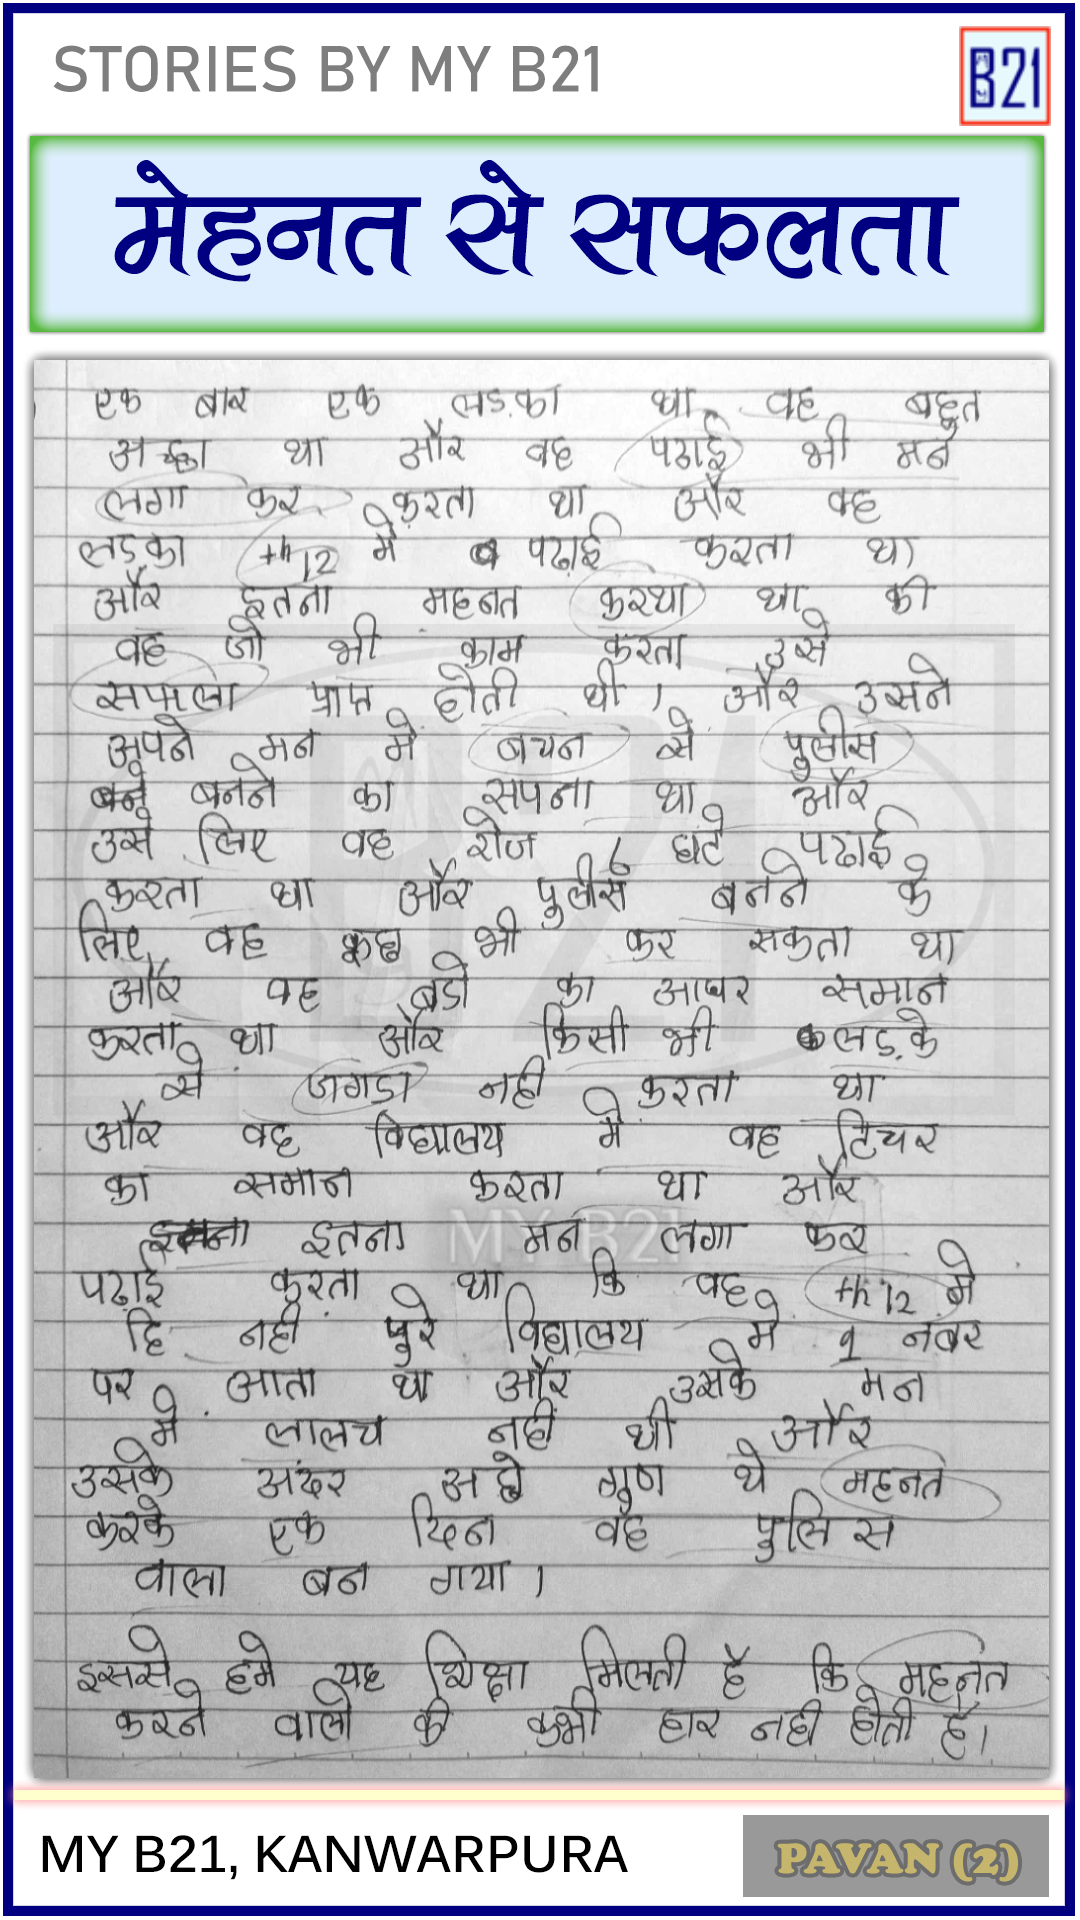 STORIES BY MY B21
B21
मेहनत से सफलता
एक बार एक लड़का था वह बहुत
अच्छा था और वह पढाई भी मन
लगा कर करता था और वह
लड़का th 12 में पढ़ाई करता था
और इतना महनत करथा था की
वह जो भी काम करता उसे
सफला प्राप्त होती थी। और उसने
अपने मन मे बचन से पुलीस
बने बनने का सपना था और
उसे लिए वह रोज 6 घंटे पढाई
करता था और पुलीस बनने के
लिए वह कुछ भी कर सकता था
और वह बडो का आधर समान
करता था और किसी भी लड़के
से जगडा नही करता था
और वह विद्यालय में वह टिचर
का समान करता था और
इतना मन लगा कर
पढाई करता था कि वह th 12 मे
हि नही पुरे विद्यालय मे 1 नबर
पर आता था और उसके मन
मे लालच नहीं थी और
उसके अंदर अछे गुण थे महनत
करके एक दिन वह पुलिस
वाला बन गया।
इससे हमे यह शिक्षा मिलती है कि महनत
करने वालो की कभी हार नही होती है।
MY B21
MY B21, KANWARPURA
PAVAN (2)